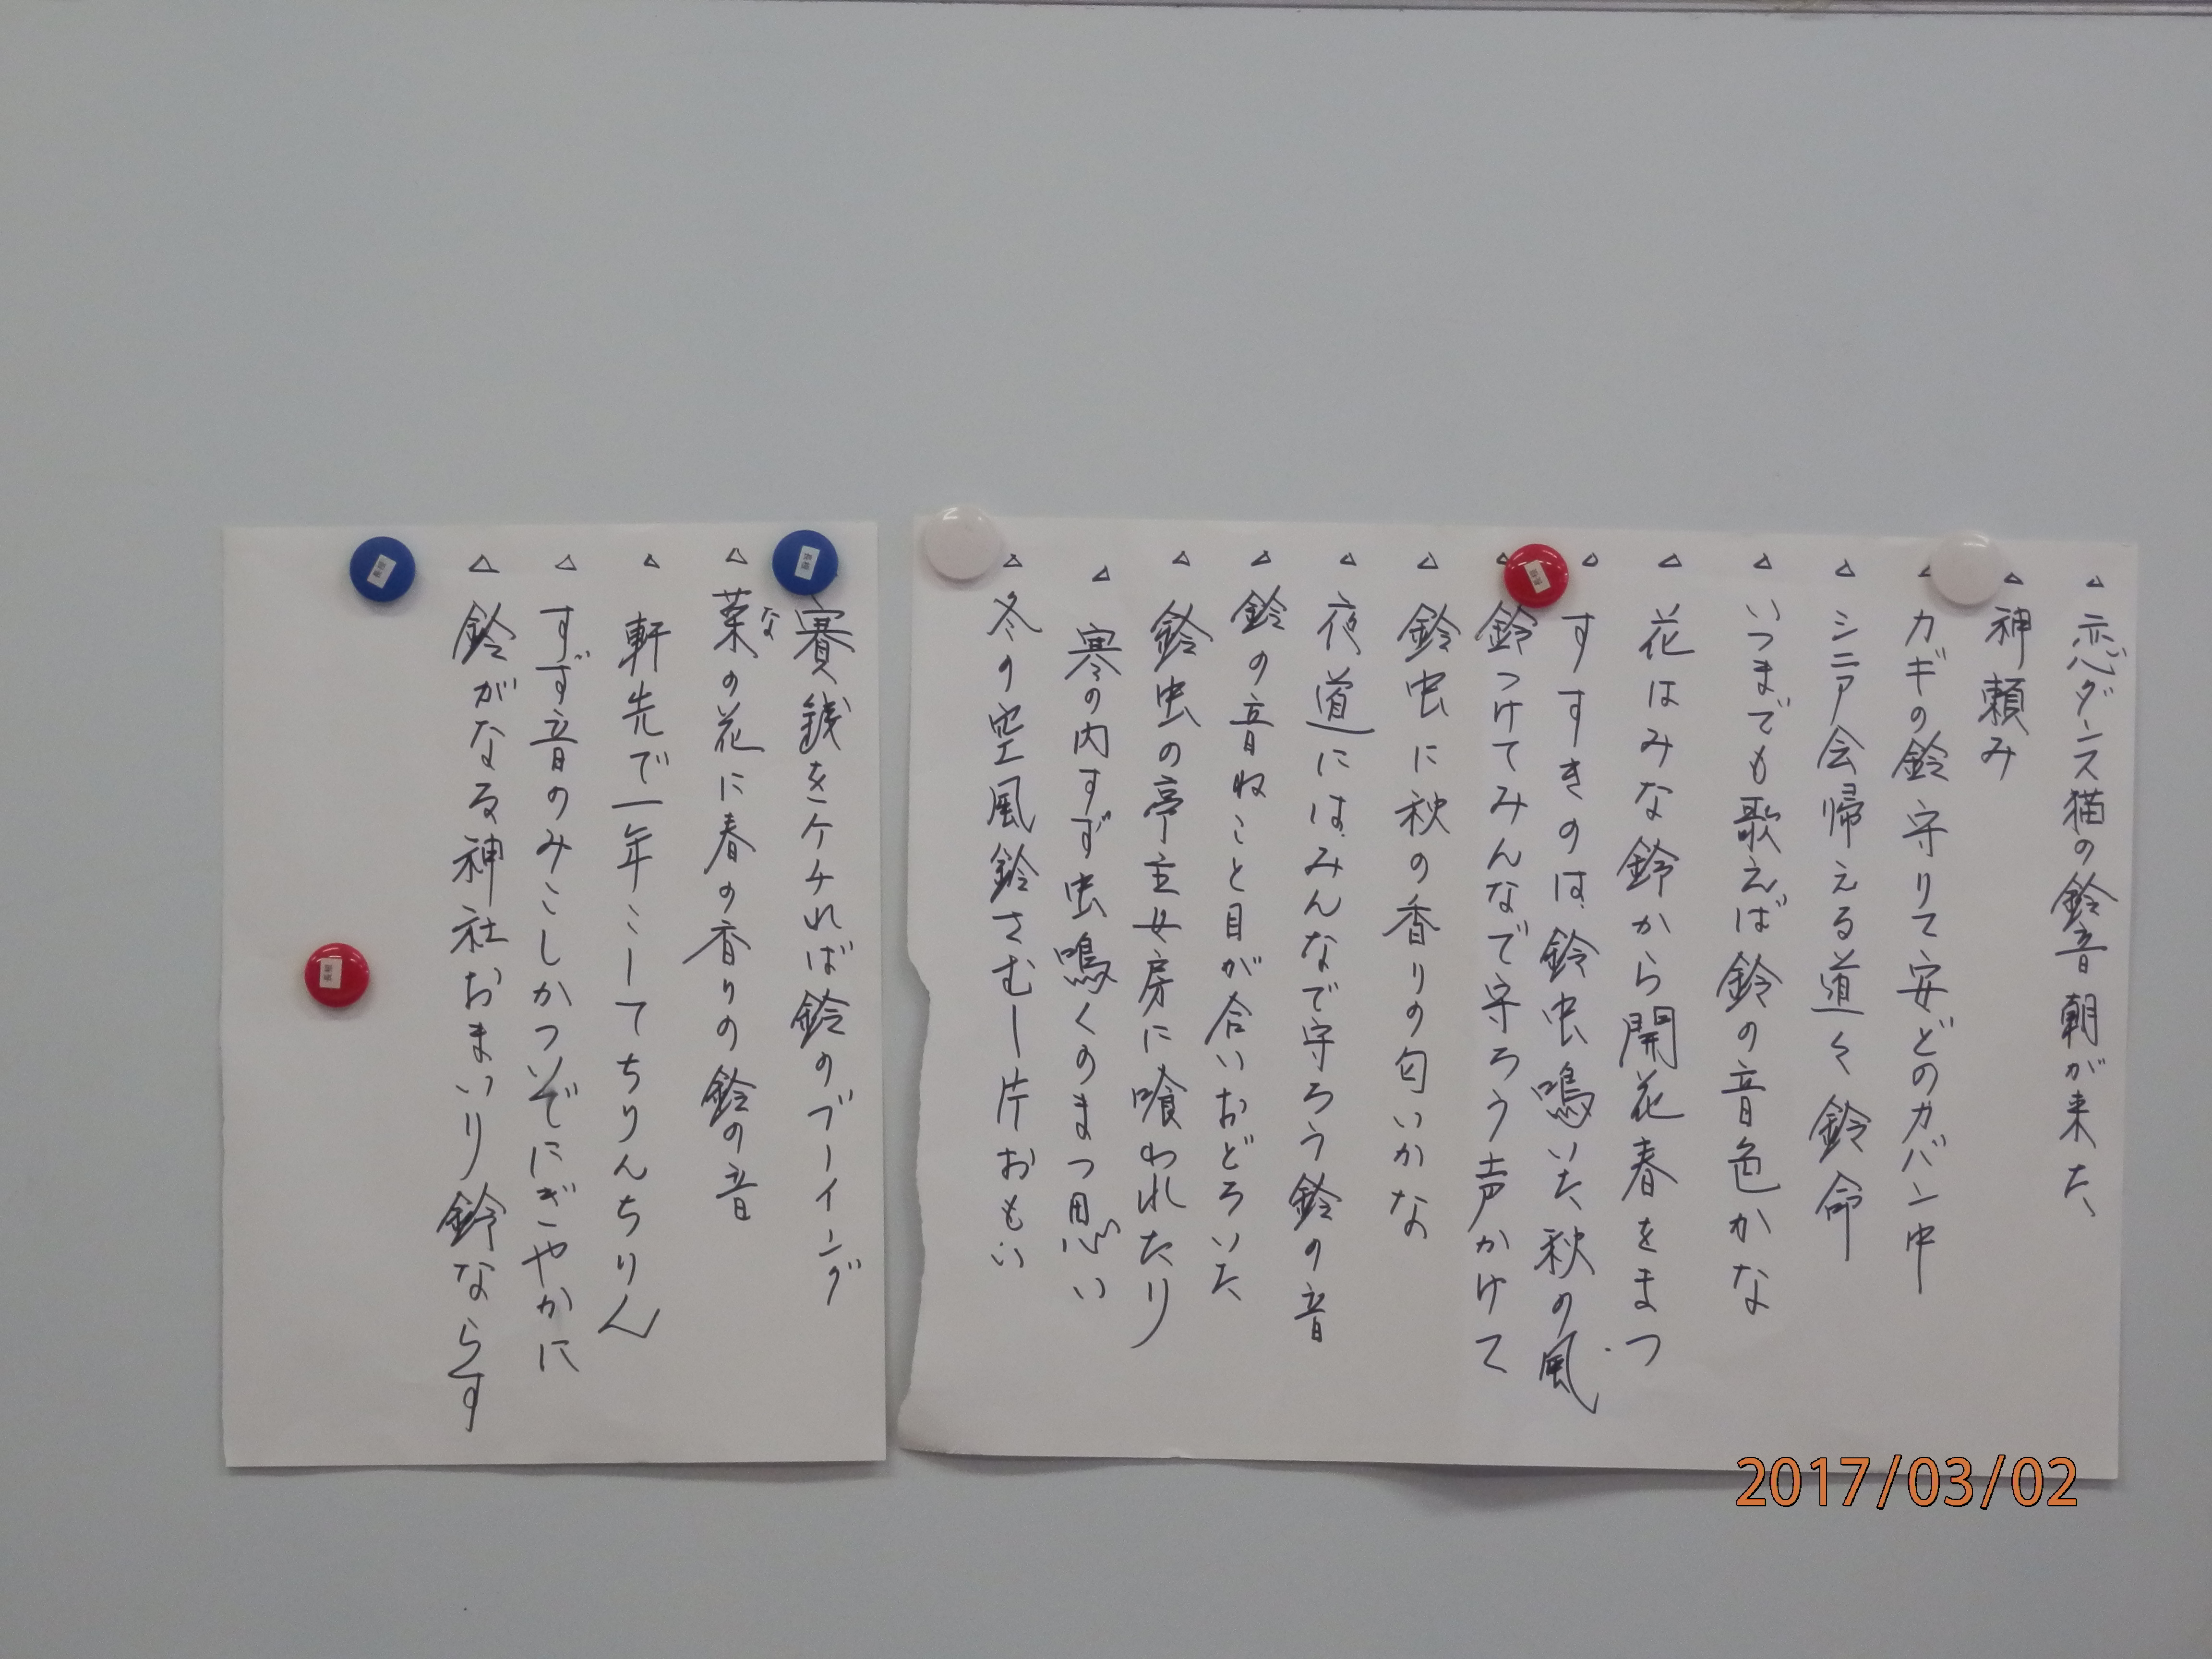 △ 恋ダンス猫の鈴音朝が来た
△ 神頼み
△ カギの鈴守りて安どのカバン中
△ シニア会帰える道々鈴命
△ いつまでも歌えば鈴の音色かな
△ 花はみな鈴から開花春をまつ
△ すすきのは鈴虫鳴いた秋の風
△ 鈴つけてみんなで守ろう声かけて
△ 鈴虫に秋の香りの匂いかな
△ 夜道にはみんなで守ろう鈴の音
△ 鈴の音ねこと目が合いおどろいた
△ 鈴虫の亭主女房に喰われたり
△ 寒の内すず虫鳴くのまつ思い
△ 冬の空風鈴さむし片おもい
賽銭をケチれば鈴のブーイング
△ 菜の花に春の香りの鈴の音
な
△ 軒先で一年こしてちりんちりん
△ すず音のみこしかついでにぎやかに
△ 鈴がなる神社おまいり鈴ならす
2017/03/02